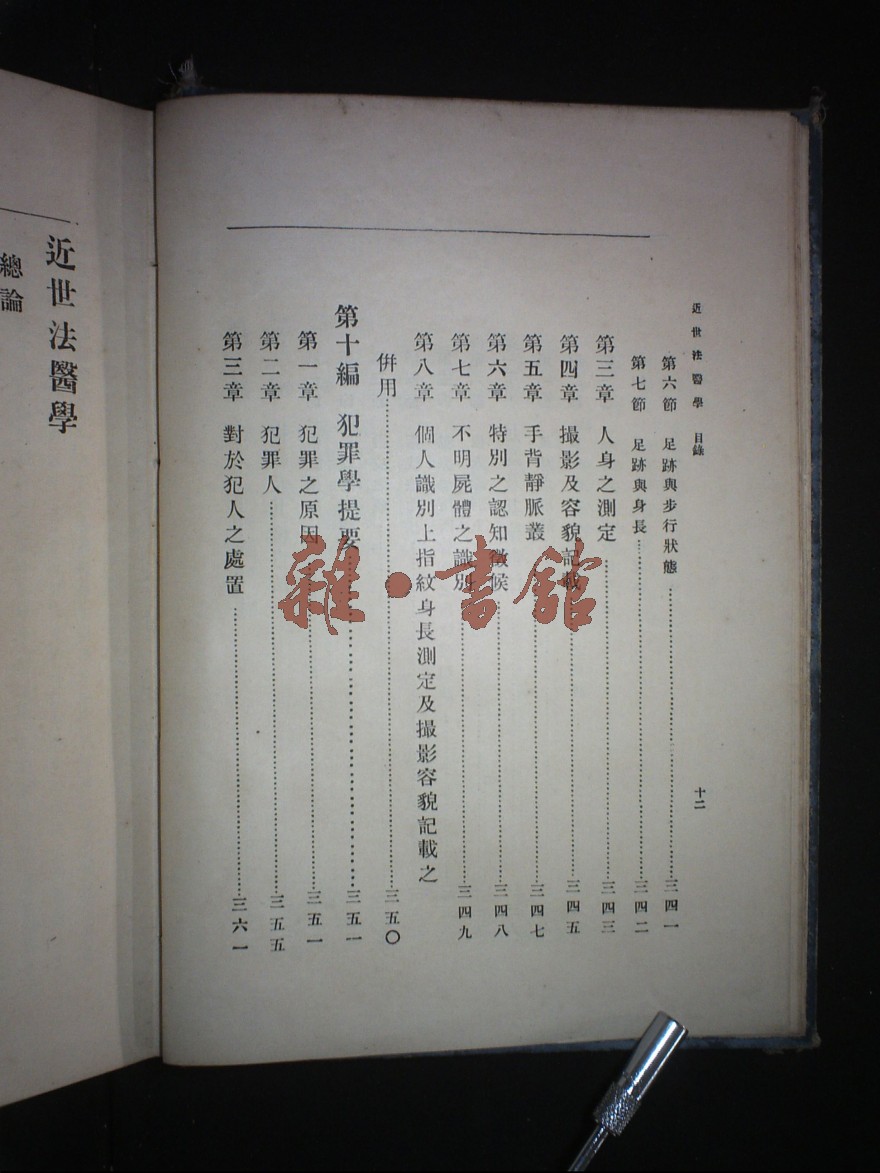 近世法醫學 目錄 十二
第六節 足跡與步行狀態……三四一
第七節 足跡與身長……三四二
第三章 人身之測定……三四三
第四章 撮影及容貌記載……三四五
第五章 手背靜脈叢……三四七
第六章 特別之認知徵候……三四八
第七章 不明屍體之識別……三四九
第八章 個人識別上指紋身長測定及撮影容貌記載之
併用……三五〇
第十編 犯罪學提要……三五一
第一章 犯罪之原因……三五一
第二章 犯罪人……三五五
第三章 對於犯人之處置……三六一
近世法醫學
總論
雜·書館